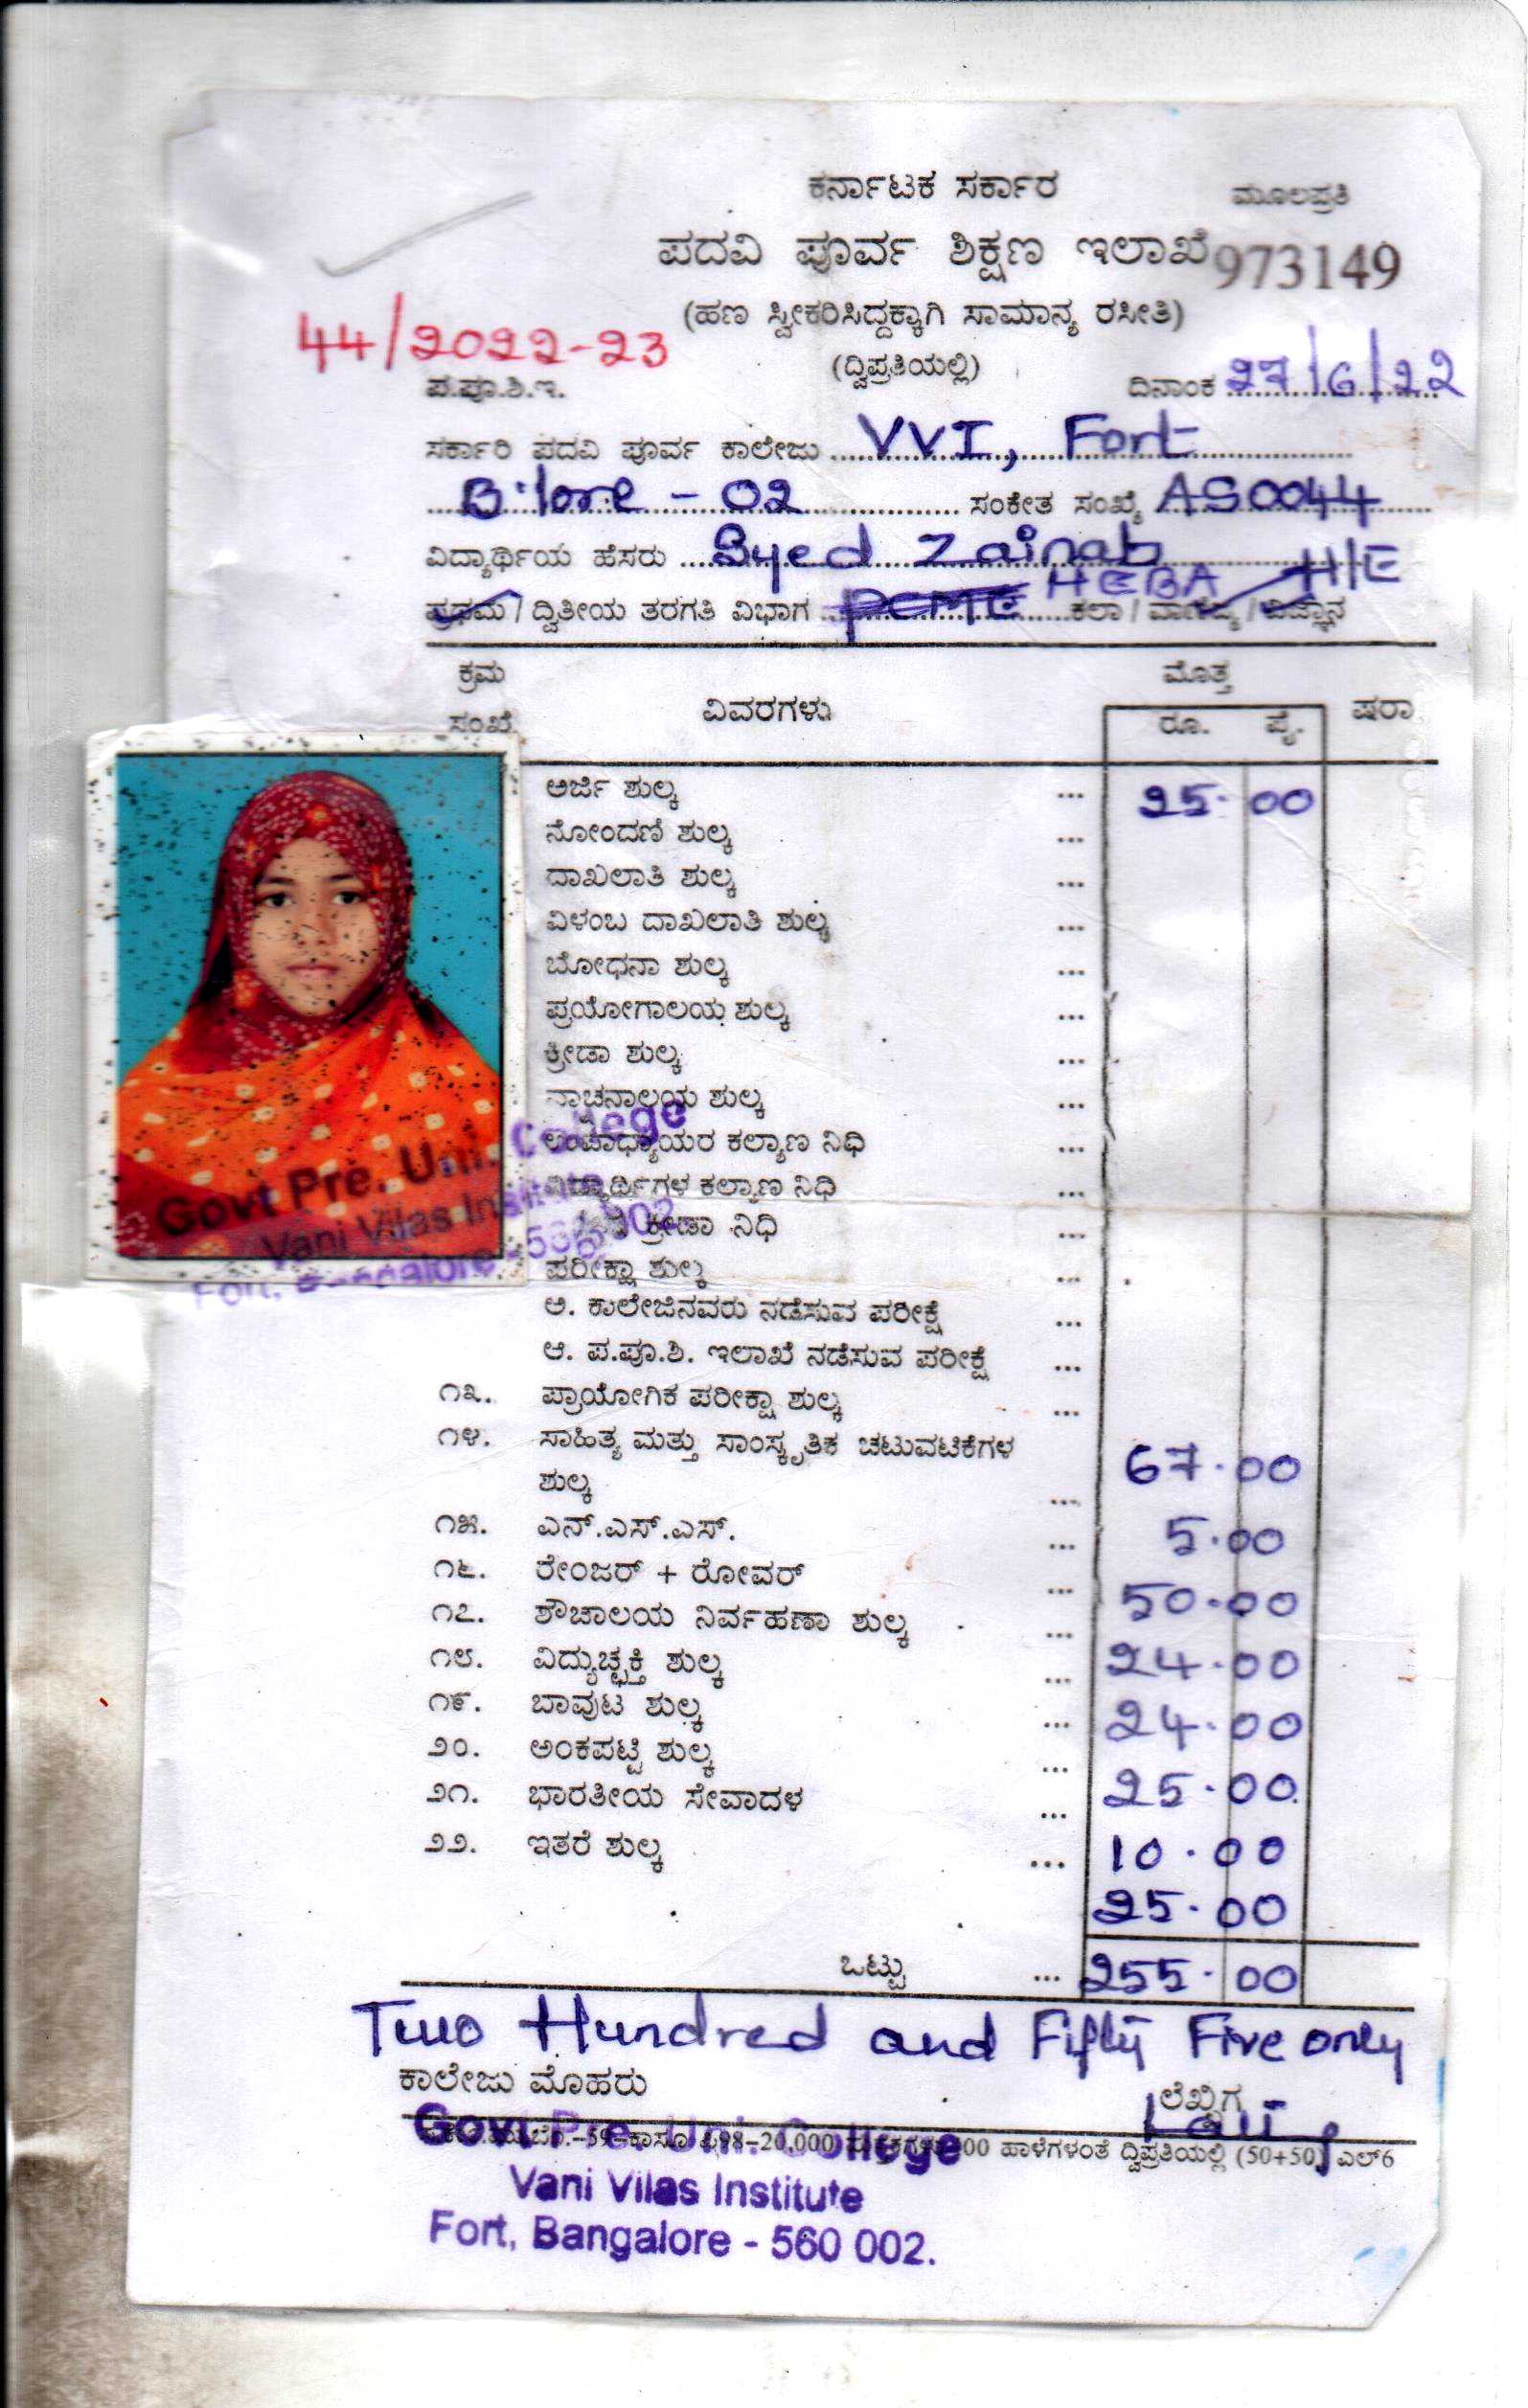 ಕರ್ನಾಟಕ ಸರ್ಕಾರ
ಮೂಲಪ್ರತಿ
ಪದವಿ ಪೂರ್ವ ಶಿಕ್ಷಣ ಇಲಾಖೆ 973149
(ಹಣ ಸ್ವೀಕರಿಸಿದ್ದಕ್ಕಾಗಿ ಸಾಮಾನ್ಯ ರಸೀತಿ)
44/2022-23
(ದ್ವಿಪ್ರತಿಯಲ್ಲಿ)
ಪ.ಪೂ.ಶಿ.ಇ. ದಿನಾಂಕ 27/6/22
ಸರ್ಕಾರಿ ಪದವಿ ಪೂರ್ವ ಕಾಲೇಜು VVI, Fort
B'lore - 02 ಸಂಕೇತ ಸಂಖ್ಯೆ AS0044
ವಿದ್ಯಾರ್ಥಿಯ ಹೆಸರು Syed Zainab
ಪ್ರಥಮ / ದ್ವಿತೀಯ ತರಗತಿ ವಿಭಾಗ PCME HEBA H/E ಕಲಾ / ವಾಣಿಜ್ಯ / ವಿಜ್ಞಾನ
ಕ್ರಮ ಸಂಖ್ಯೆ ವಿವರಗಳು ಮೊತ್ತ ರೂ. ಪೈ. ಷರಾ
ಅರ್ಜಿ ಶುಲ್ಕ ... 25.00
ನೋಂದಣಿ ಶುಲ್ಕ ...
ದಾಖಲಾತಿ ಶುಲ್ಕ ...
ವಿಳಂಬ ದಾಖಲಾತಿ ಶುಲ್ಕ ...
ಬೋಧನಾ ಶುಲ್ಕ ...
ಪ್ರಯೋಗಾಲಯ ಶುಲ್ಕ ...
ಕ್ರೀಡಾ ಶುಲ್ಕ ...
ವಾಚನಾಲಯ ಶುಲ್ಕ ...
ಉಪಾಧ್ಯಾಯರ ಕಲ್ಯಾಣ ನಿಧಿ ...
ವಿದ್ಯಾರ್ಥಿಗಳ ಕಲ್ಯಾಣ ನಿಧಿ ...
ಕ್ರೀಡಾ ನಿಧಿ ...
ಪರೀಕ್ಷಾ ಶುಲ್ಕ ...
ಅ. ಕಾಲೇಜಿನವರು ನಡೆಸುವ ಪರೀಕ್ಷೆ ...
ಆ. ಪ.ಪೂ.ಶಿ. ಇಲಾಖೆ ನಡೆಸುವ ಪರೀಕ್ಷೆ ...
೧೩. ಪ್ರಾಯೋಗಿಕ ಪರೀಕ್ಷಾ ಶುಲ್ಕ ...
೧೪. ಸಾಹಿತ್ಯ ಮತ್ತು ಸಾಂಸ್ಕೃತಿಕ ಚಟುವಟಿಕೆಗಳ
ಶುಲ್ಕ ... 67.00
೧೫. ಎನ್.ಎಸ್.ಎಸ್. ... 5.00
೧೬. ರೇಂಜರ್ + ರೋವರ್ ... 50.00
೧೭. ಶೌಚಾಲಯ ನಿರ್ವಹಣಾ ಶುಲ್ಕ ... 24.00
೧೮. ವಿದ್ಯುಚ್ಛಕ್ತಿ ಶುಲ್ಕ ... 24.00
೧೯. ಬಾವುಟ ಶುಲ್ಕ ... 25.00
೨೦. ಅಂಕಪಟ್ಟಿ ಶುಲ್ಕ ... 10.00
೨೧. ಭಾರತೀಯ ಸೇವಾದಳ ... 25.00
೨೨. ಇತರೆ ಶುಲ್ಕ ...
Govt Pre. Uni. College
Vani Vilas Institute
Fort, Bangalore - 560 002
ಒಟ್ಟು ... 255.00
Two Hundred and Fifty Five only
ಕಾಲೇಜು ಮೊಹರು ಲೆಖ್ಖಿಗ
20,000 ಹಾಳೆಗಳಂತೆ ದ್ವಿಪ್ರತಿಯಲ್ಲಿ (50+50) ಎಲ್6
Govt Pre. Uni. College
Vani Vilas Institute
Fort, Bangalore - 560 002.